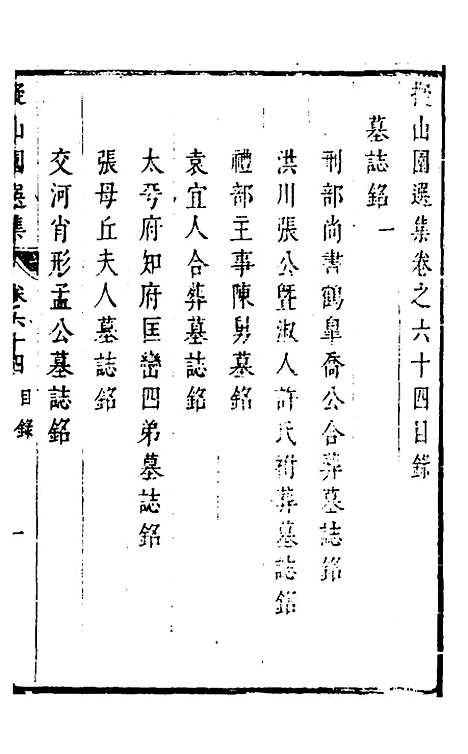 擬山園選集卷之六十四目錄
墓誌銘一
刑部尚書鶴皐喬公合葬墓誌銘
洪川張公暨淑人許氏祔葬墓誌銘
禮部主事陳男墓銘
袁宜人合葬墓誌銘
太平府知府匡巒四弟墓誌銘
張母丘夫人墓誌銘
交河肖形孟公墓誌銘
擬山園選集 卷六十四 目錄 一